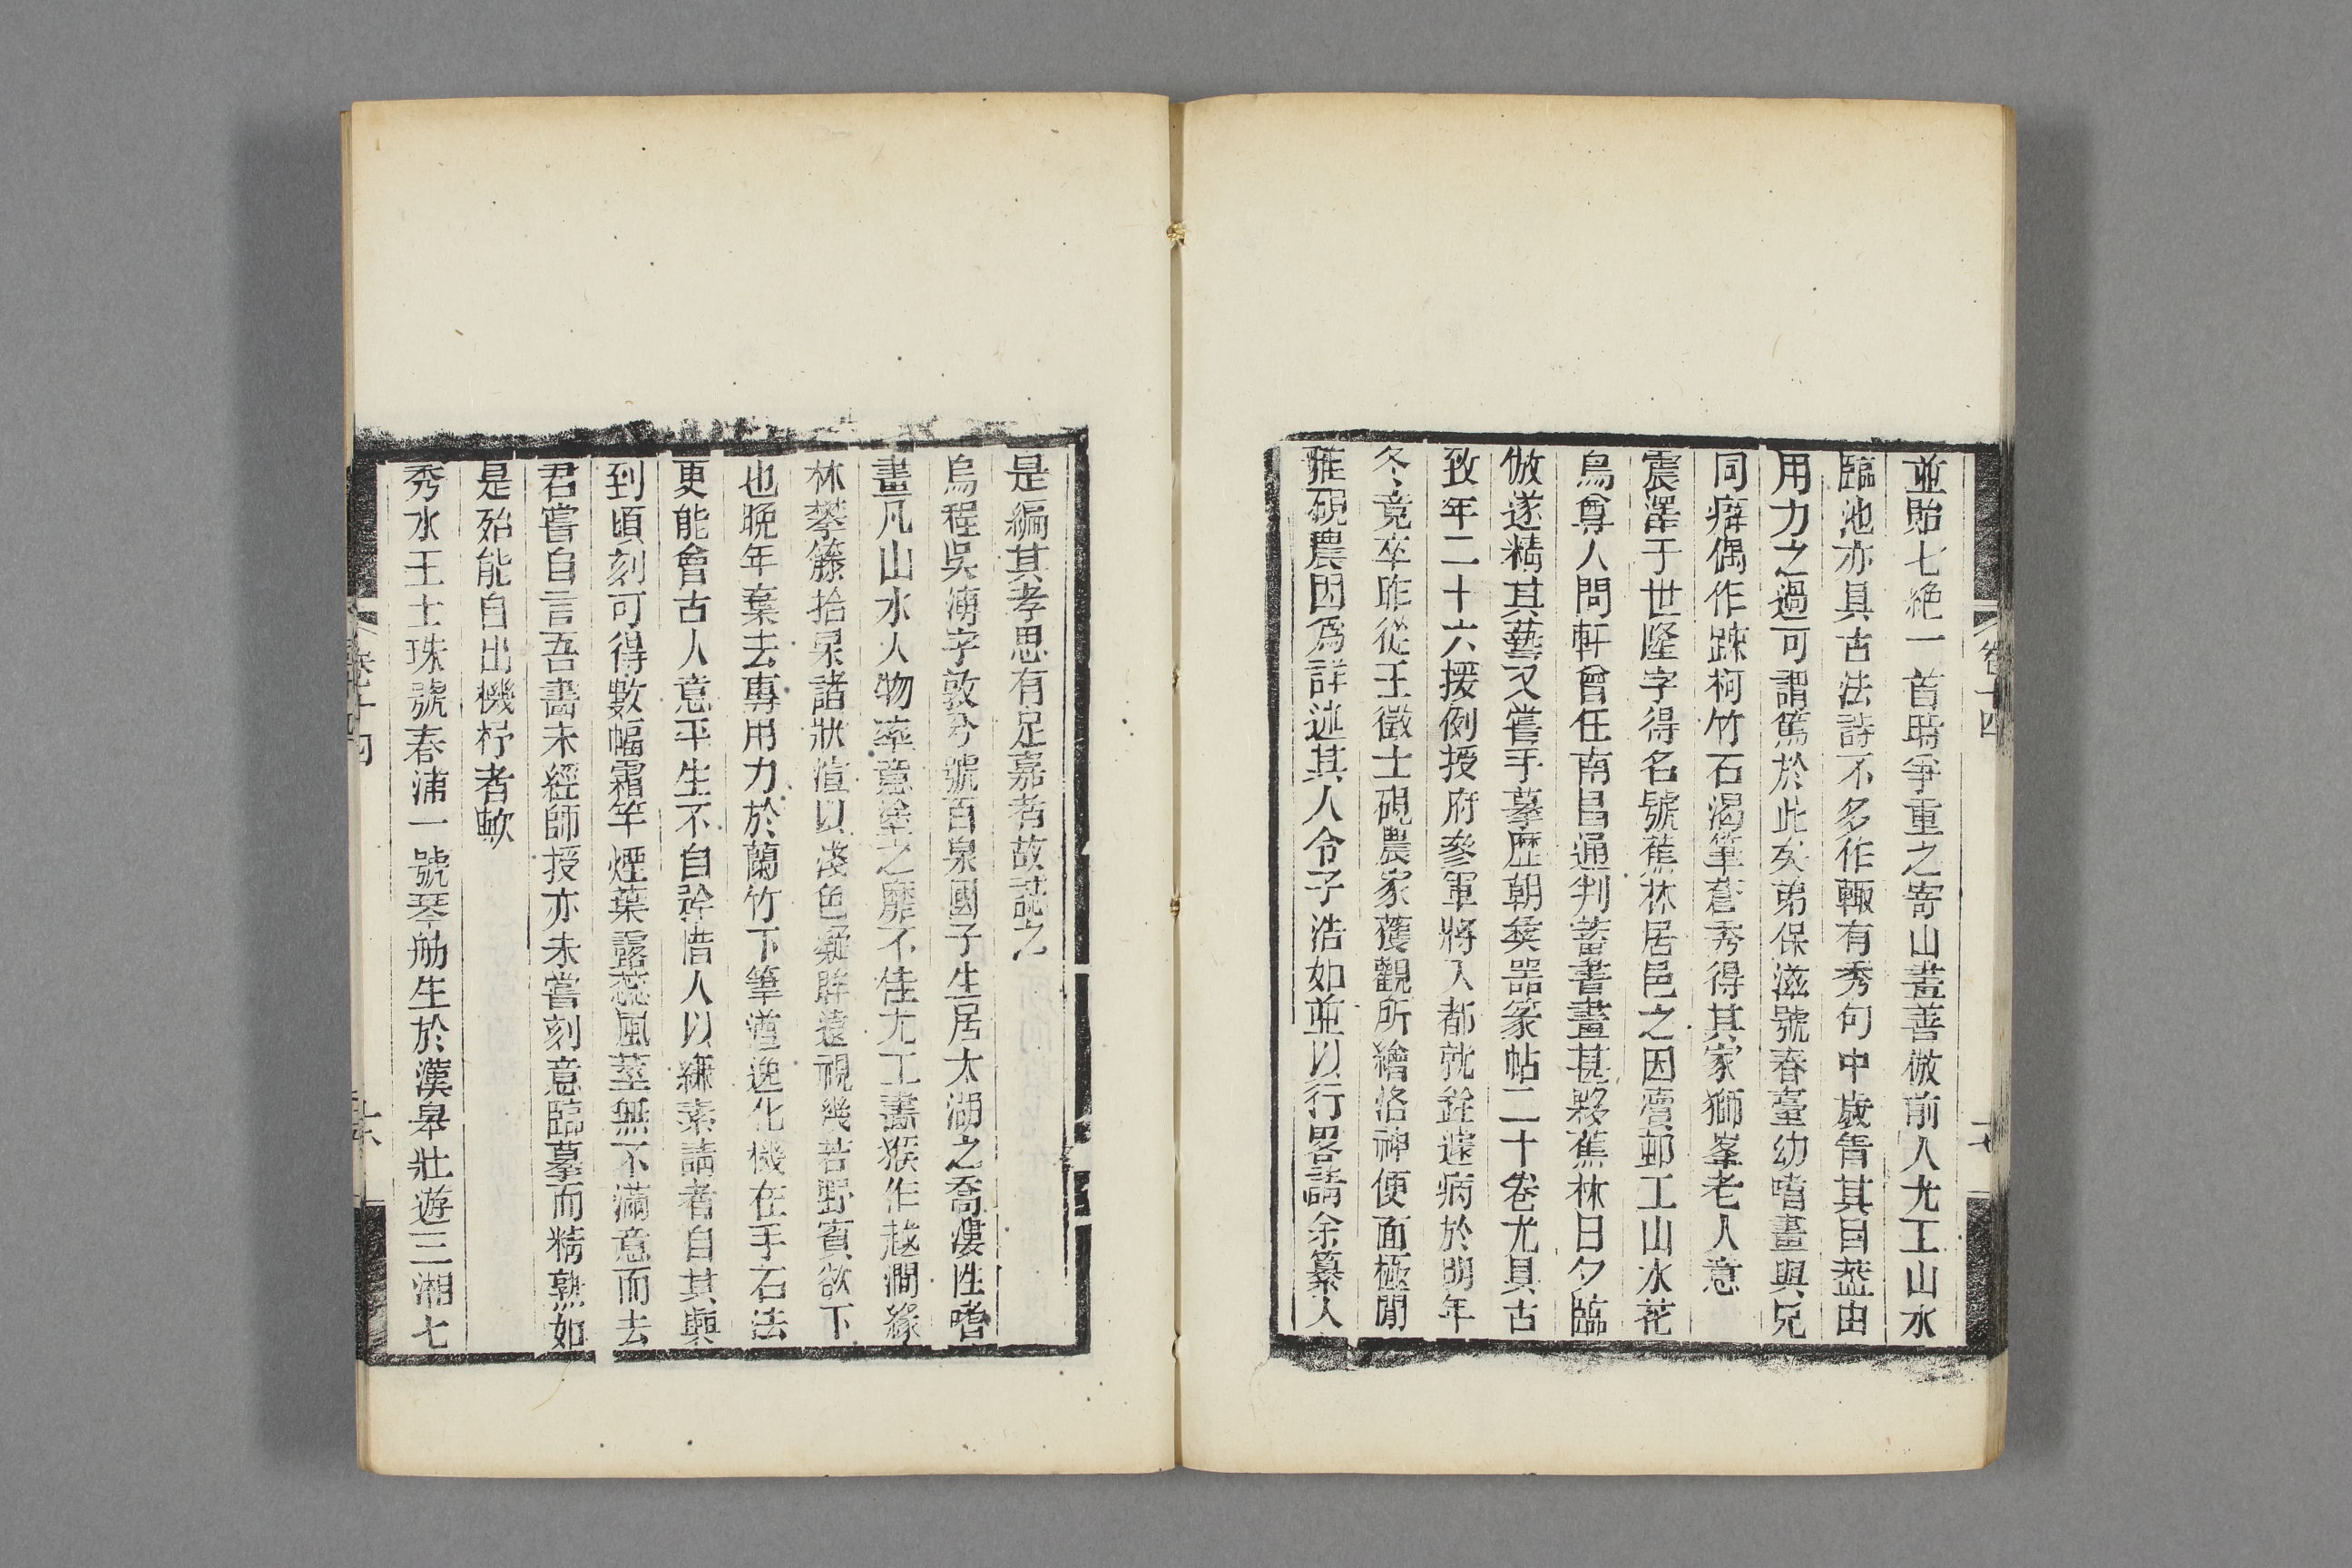 並貽七絶一首時爭重之寄山畫善倣前人尤工山水
臨池亦具古法詩不多作輒有秀句中歲眚其目葢由
用力之過可謂篤於此矣弟保滋號春臺幼嗜畫與兄
同癖偶作踈柯竹石渴筆蒼秀得其家獅峯老人意
震澤于世隆字得名號蕉林居邑之因瀆邨工山水花
鳥尊人問軒曾任南昌通判蓄書畫甚夥蕉林日夕臨
倣遂精其藝又嘗手摹歷朝彝器篆帖二十卷尤具古
致年二十六援例授府參軍將入都就銓遘病於明年
冬竟卒昨從王徵士硯農家獲觀所繪洛神便面極閒
雅硯農因爲詳述其人令子浩如並以行畧請余纂入
卷十四
是編其孝思有足嘉者故誌之
烏程吳溥字敦兮號百泉國子生居太湖之喬漊性嗜
畫凡山水人物率意塗之靡不佳尤工畫猴作越澗緣
林攀籐拾果諸狀渲以淺色凝眸遠視幾若野賓欲下
也晚年棄去專用力於蘭竹下筆遒逸化機在手石法
更能會古人意平生不自矜惜人以縑素請者自其輿
到頃刻可得數幅霜竿煙葉露蕊風莖無不滿意而去
君嘗自言吾畫未經師授亦未嘗刻意臨摹而精熟如
是殆能自出機杼者歟
秀水王士珠號春浦一號琴舫生於漢皋壯遊三湘七
卷十四